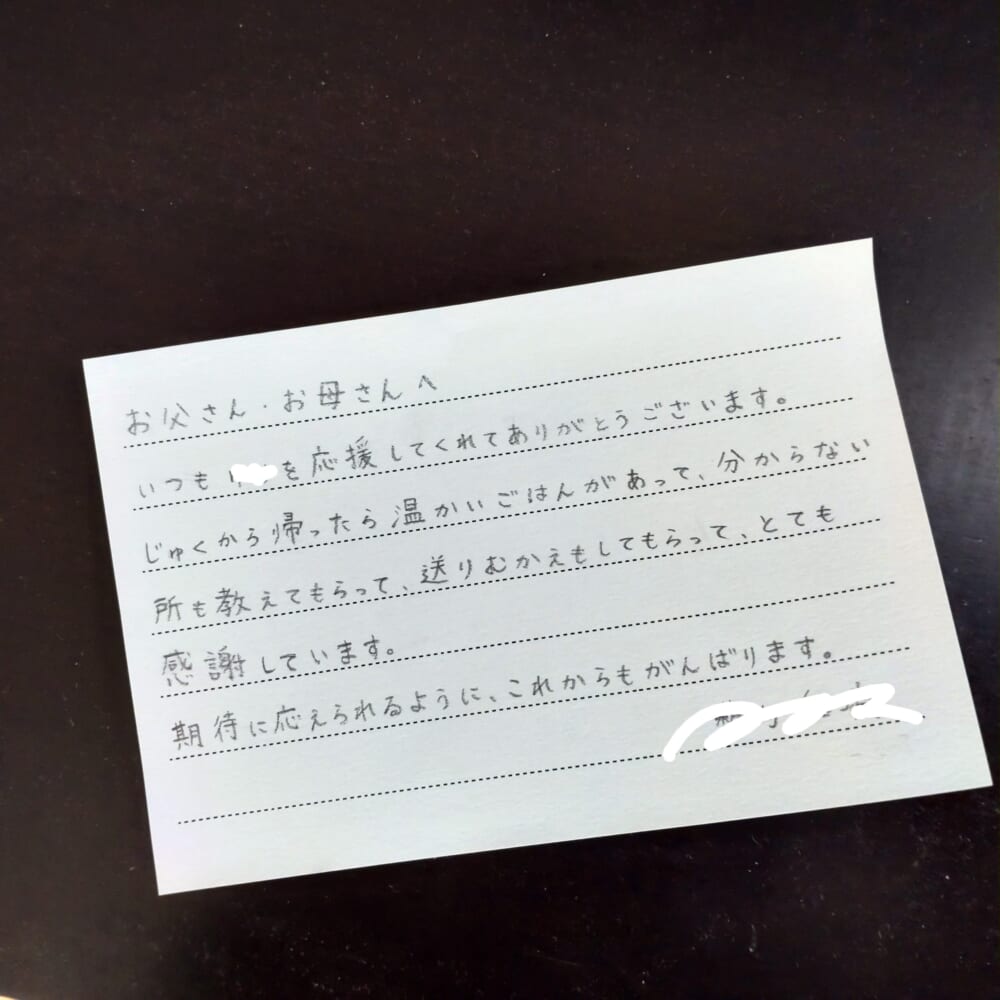 お父さん・お母さんへ
いつも を応援してくれてありがとうございます。
じゅくから帰ったら温かいごはんがあって、分からない
所も教えてもらって、送りむかえもしてもらって、とても
感謝しています。
期待に応えられるように、これからもがんばります。